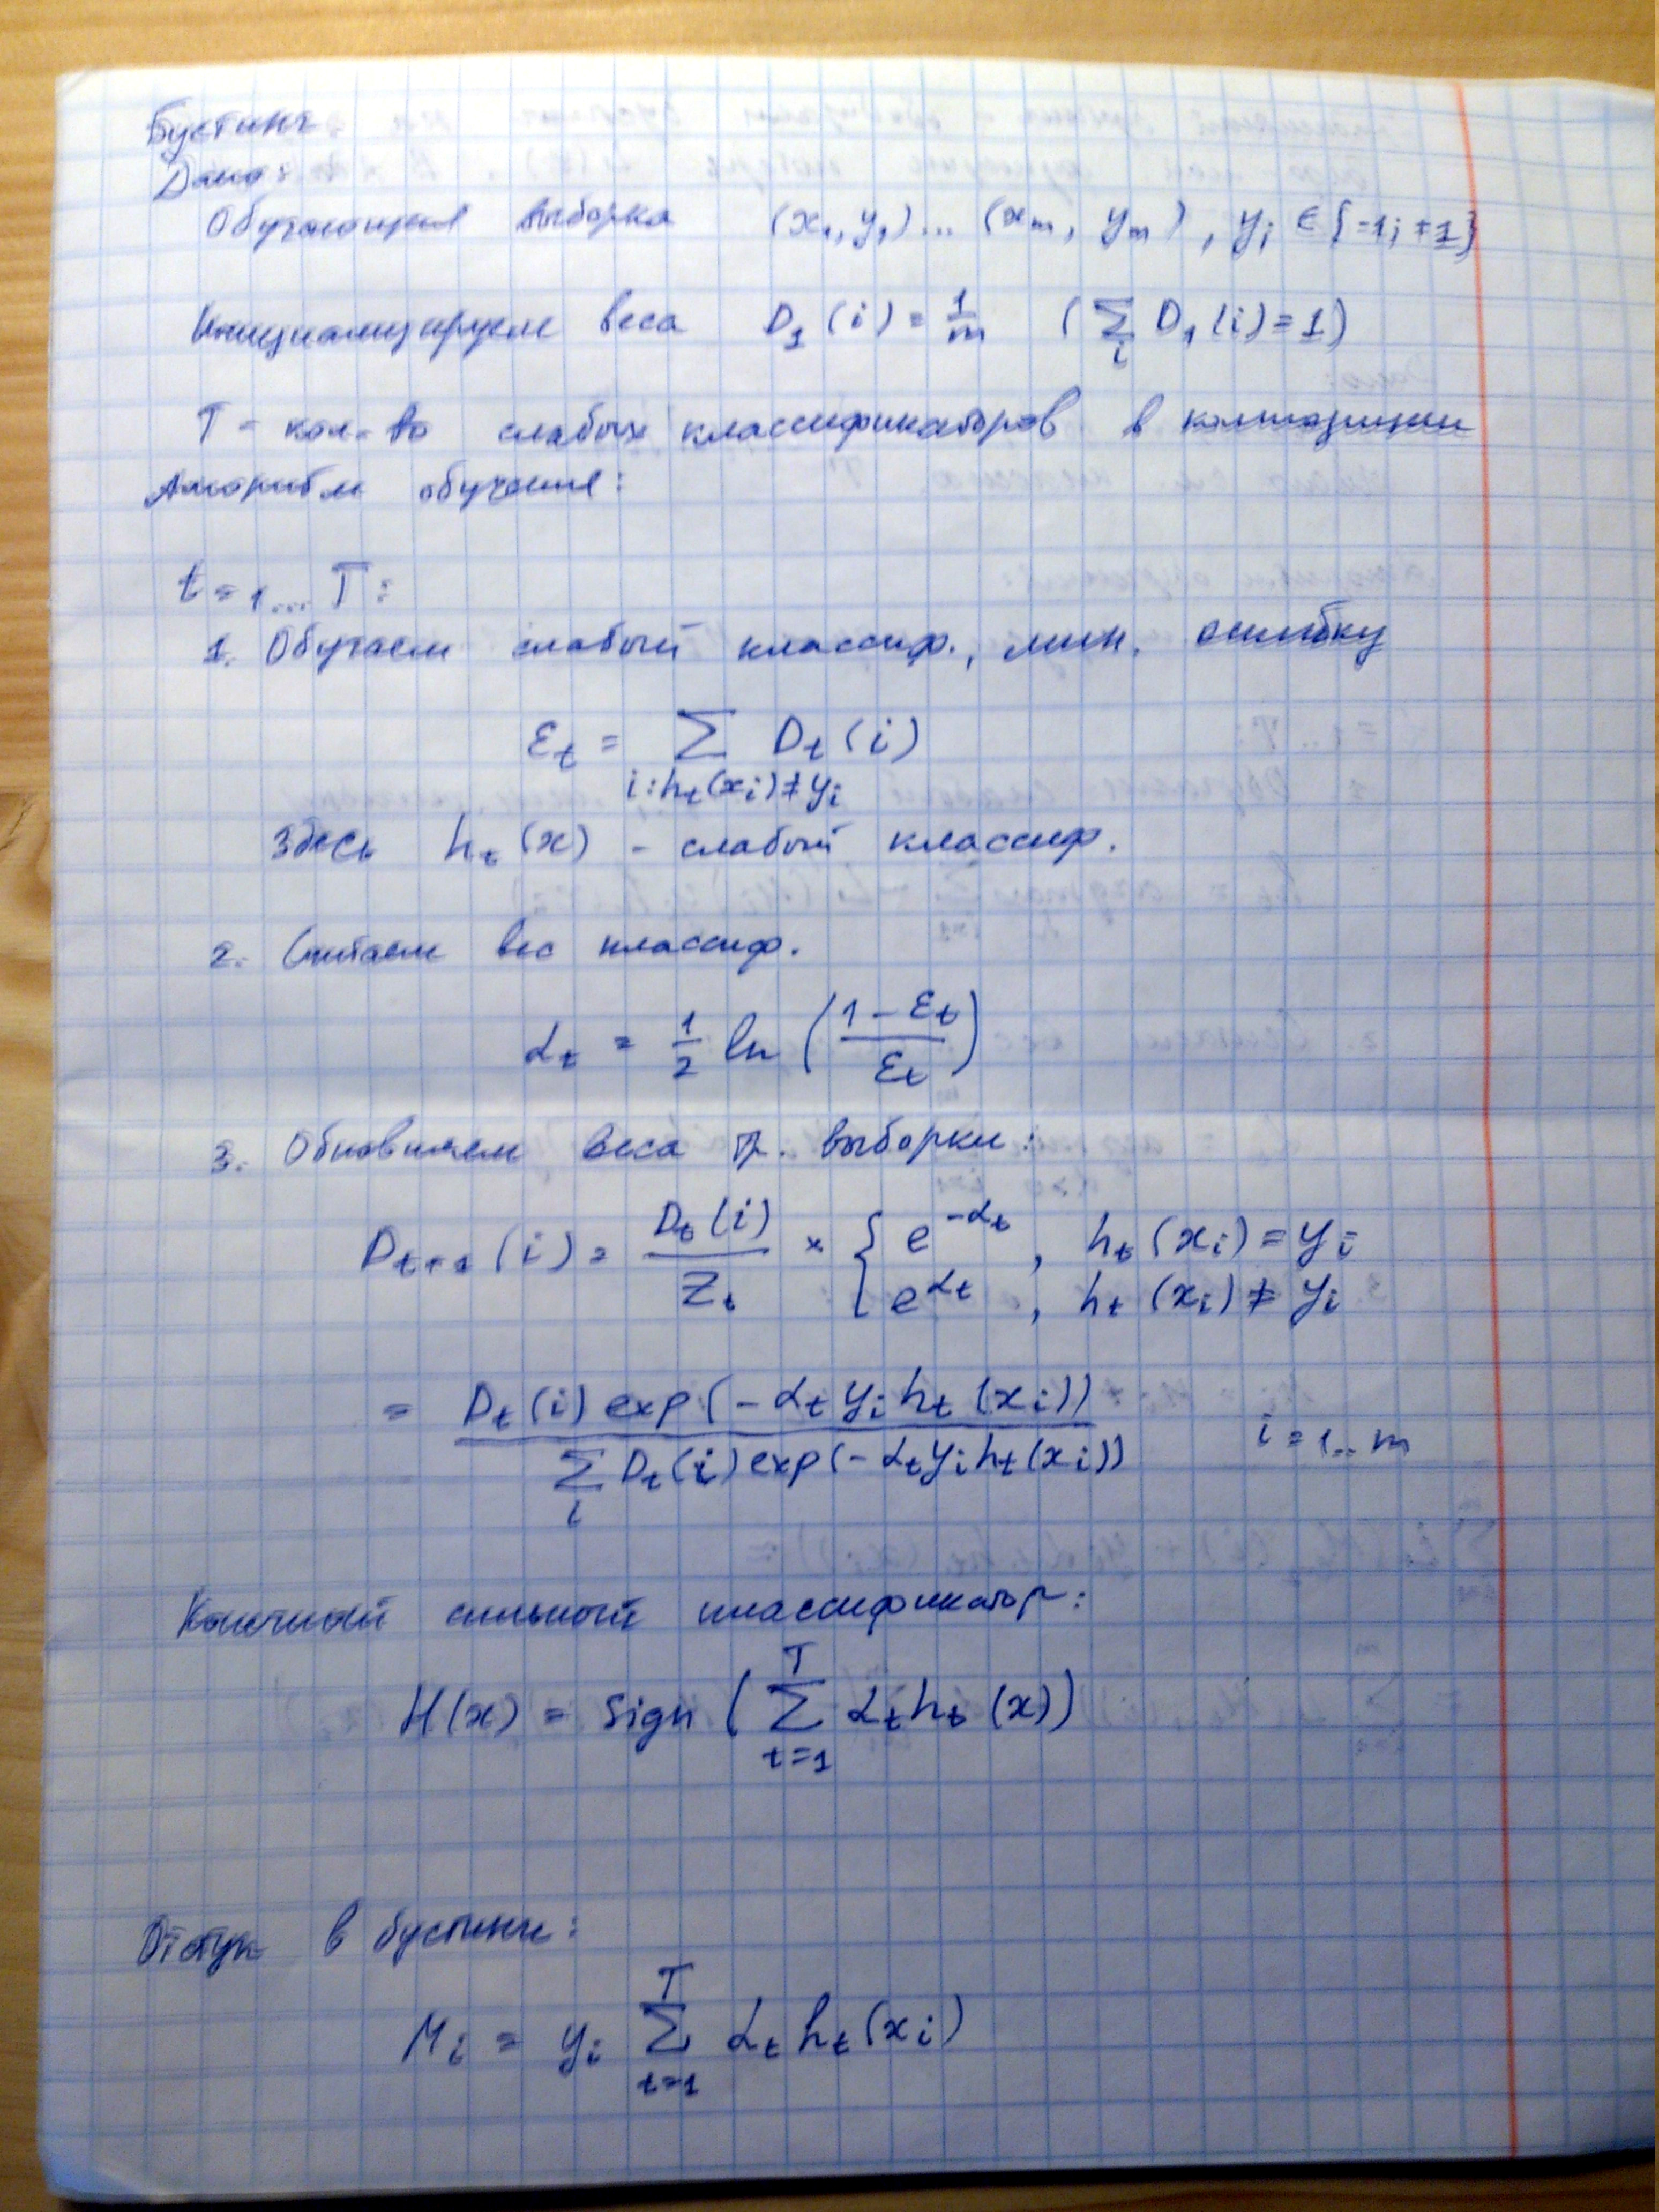 Бустинг
Дано:
Обучающая выборка (x₁, y₁)... (xₘ, yₘ), yᵢ ∈ {-1; +1}
Инициализируем веса D₁(i) = 1/m (∑ᵢ D₁(i) = 1)
T - кол-во слабых классификаторов в композиции
Алгоритм обучения:
t = 1... T:
1. Обучаем слабый классиф., мин. ошибку
εₜ = ∑ Dₜ(i)
i: hₜ(xᵢ) ≠ yᵢ
здесь hₜ(x) - слабый классиф.
2. Считаем вес классиф.
αₜ = 1/2 ln((1 - εₜ)/εₜ)
3. Обновляем веса тр. выборки:
Dₜ₊₁(i) = Dₜ(i)/Zₜ × { e^(-αₜ), hₜ(xᵢ) = yᵢ
e^(αₜ), hₜ(xᵢ) ≠ yᵢ
= Dₜ(i) exp(-αₜ yᵢ hₜ(xᵢ))
∑ᵢ Dₜ(i) exp(-αₜ yᵢ hₜ(xᵢ)) i = 1.. m
Конечный сильный классификатор:
H(x) = sign(∑ₜ₌₁ᵀ αₜ hₜ(x))
Отступ в бустинге:
Mᵢ = yᵢ ∑ₜ₌₁ᵀ αₜ hₜ(xᵢ)